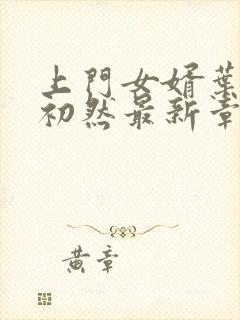 上門女婿葉
初然最新章
黄章